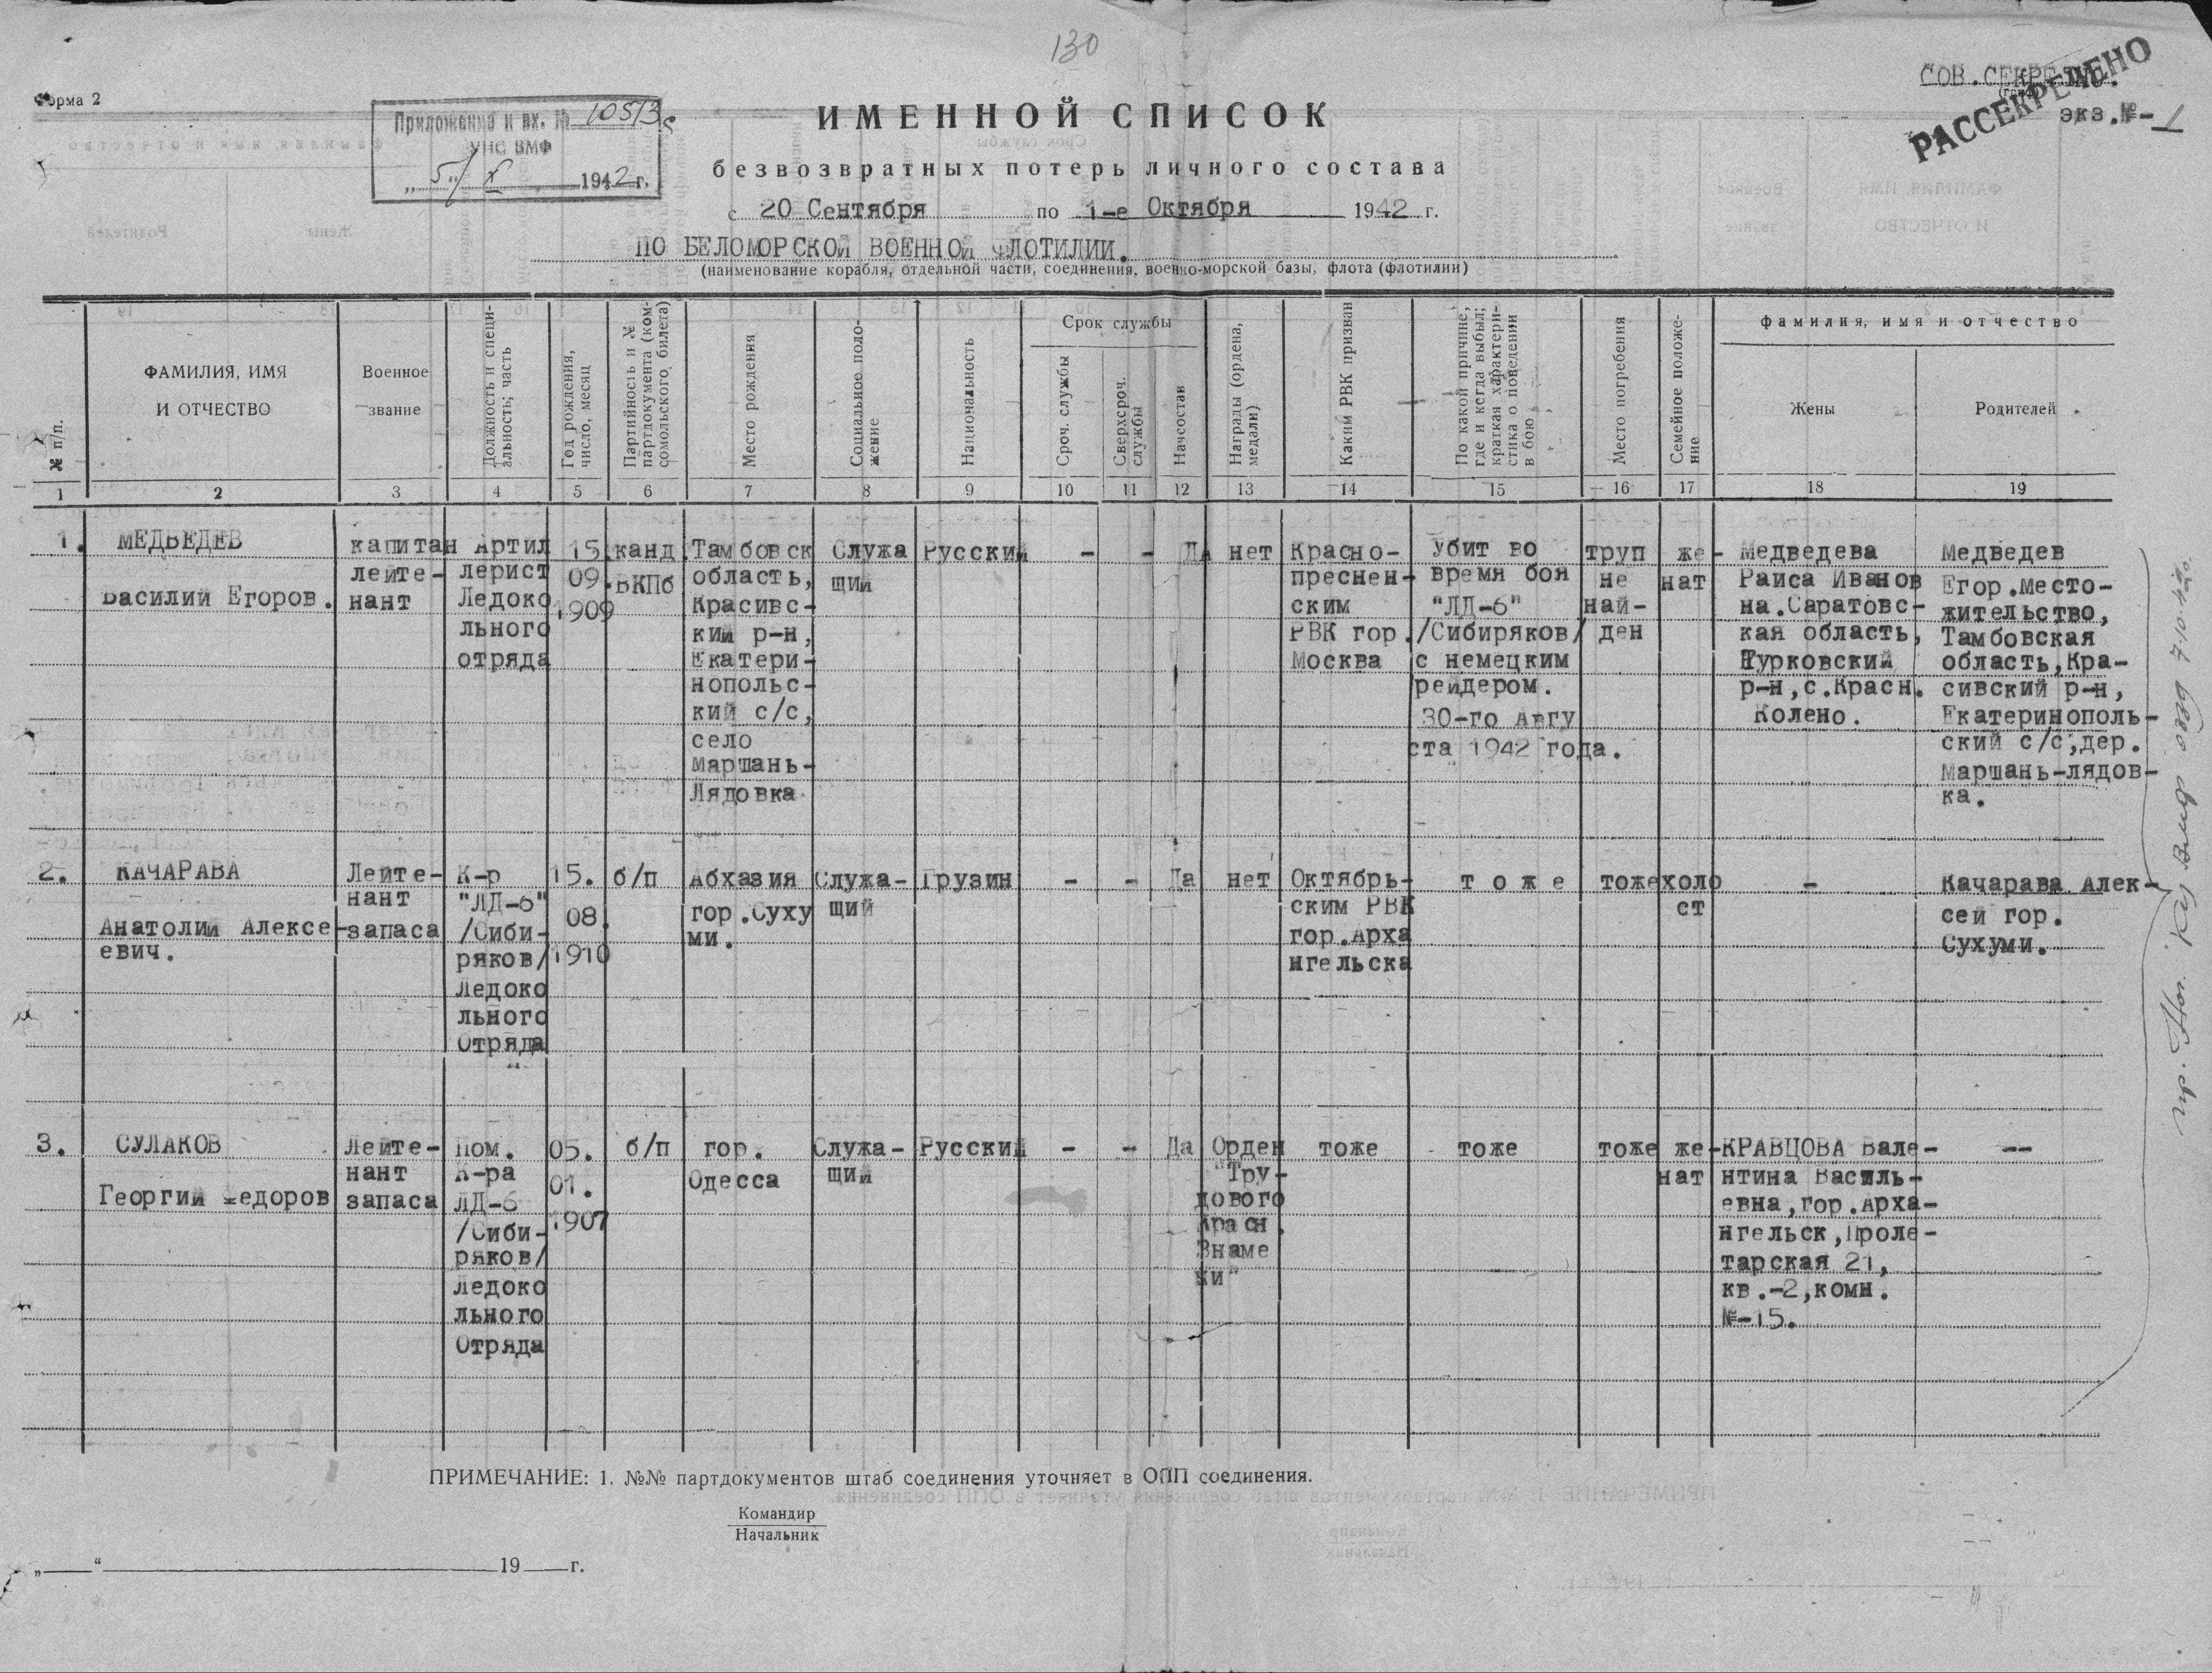 130
Форма 2
Приложение к вх. № 10513с
УНС ВМФ
„5" X 1942 г.
СОВ. СЕКРЕТНО.
РАССЕКРЕЧЕНО
экз.№-1
ИМЕННОЙ СПИСОК
безвозвратных потерь личного состава
с 20 Сентября по 1-е Октября 1942 г.
ПО БЕЛОМОРСКОЙ ВОЕННОЙ ФЛОТИЛИИ.
(наименование корабля, отдельной части, соединения, военно-морской базы, флота (флотилии)
№ п/п.
ФАМИЛИЯ, ИМЯ
И ОТЧЕСТВО
Военное
звание
Должность и специ-
альность; часть
Год рождения,
число, месяц
Партийность и №
партдокумента (ком-
сомольского билета)
Место рождения
Социальное поло-
жение
Национальность
Срок службы
Сроч. службы
Сверхсроч.
службы
Начсостав
Награды (ордена,
медали)
Каким РВК призван
По какой причине,
где и когда выбыл;
краткая характери-
стика о поведении
в бою
Место погребения
Семейное положе-
ние
фамилия, имя и отчество
Жены
Родителей
1 2 3 4 5 6 7 8 9 10 11 12 13 14 15 16 17 18 19
1.
МЕДВЕДЕВ
Василий Егоров.
капитан
лейте-
нант
Артил
лерист
Ледоко
льного
отряда
15.
09.
1909
канд.
ВКПб
Тамбовск
область,
Красивс-
кий р-н,
Екатери-
нопольс-
кий с/с,
село
Маршань-
Лядовка
Служа
щий
Русский
-
-
ДА
нет
Красно-
преснен-
ским
РВК гор.
Москва
Убит во
время боя
"ЛД-6"
/Сибиряков/
с немецким
рейдером.
30-го Авгу
ста 1942 года.
труп
не
най-
ден
же-
нат
Медведева
Раиса Иванов
на.Саратовс-
кая область,
Турковский
р-н,с.Красн.
Колено.
Медведев
Егор.Место-
жительство,
Тамбовская
область,Кра-
сивский р-н,
Екатеринополь-
ский с/с,дер.
Маршань-лядов-
ка.
2.
КАЧАРАВА
Анатолий Алексе-
евич.
Лейте-
нант
запаса
К-р
"ЛД-6"
/Сиби-
ряков/
Ледоко
льного
Отряда
15.
08.
1910
б/п
Абхазия
гор.Суху
ми.
Служа-
щий
Грузин
-
-
Да
нет
Октябрь-
ским РВК
гор.Арха
нгельска
тоже
тоже
холо
ст
-
Качарава Алек-
сей гор.
Сухуми.
3.
СУЛАКОВ
Георгий Федоров
Лейте-
нант
запаса
Пом.
К-ра
ЛД-6
/Сиби-
ряков/
Ледоко
льного
Отряда
05.
01.
1907
б/п
гор.
Одесса
Служа-
щий
Русский
-
-
Да
Орден
"Тру-
дового
Красн.
Знаме
ни"
тоже
тоже
тоже
же-
нат
КРАВЦОВА Вале-
нтина Василь-
евна,гор.Арха-
нгельск,Проле-
тарская 21,
кв.-2,комн.
№-15.
--
ПРИМЕЧАНИЕ: 1. №№ партдокументов штаб соединения уточняет в ОПП соединения.
Командир
Начальник
„ “ 19 г.